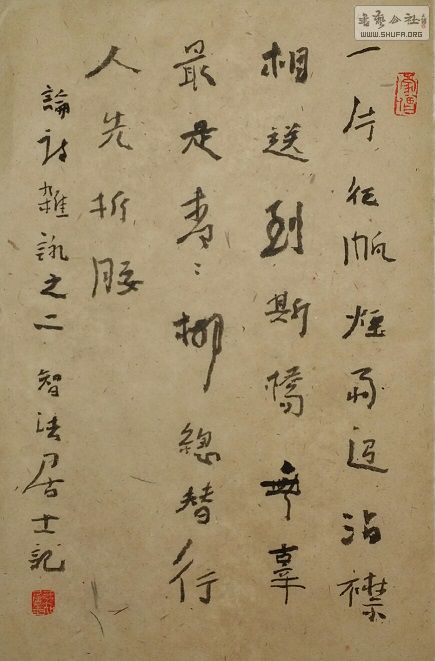 一片征帆煙雨迢沾襟
相送到斯橋無辜
最是青〻柳總替行
人先折腰
論詩雜詠之二 智法居士記
書藝公社
WWW.SHUFA.ORG